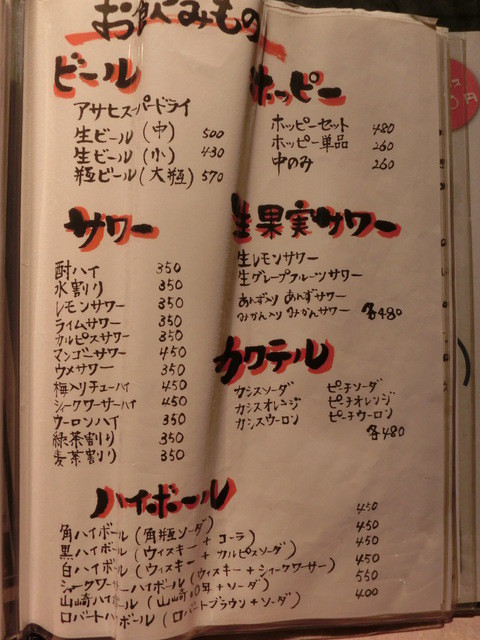 お飲みもの
ビール
アサヒスーパードライ
生ビール(中) 500
生ビール(小) 430
瓶ビール(大瓶) 570
ホッピー
ホッピーセット 480
ホッピー単品 260
中のみ 260
サワー
酎ハイ 350
水割り 350
レモンサワー 350
ライムサワー 350
カルピスサワー 350
マンゴーサワー 450
ウメサワー 350
梅入りチューハイ 450
シークワーサーハイ 450
ウーロンハイ 350
緑茶割り 350
麦茶割り 350
生果実サワー
生レモンサワー
生グレープフルーツサワー
あんず入り あんずサワー
みかん入り みかんサワー 各480
カクテル
カシスソーダ ピーチソーダ
カシスオレンジ ピーチオレンジ
カシスウーロン ピーチウーロン
各480
ハイボール
角ハイボール(角瓶ソーダ) 450
黒ハイボール(ウィスキー+コーラ) 450
白ハイボール(ウィスキー+カルピスソーダ) 450
シークワーサーハイボール(ウィスキー+シィークワーサー) 450
山崎ハイボール(山崎10年+ソーダ) 550
ロバートハイボール(ロバートブラウン+ソーダ) 400
円